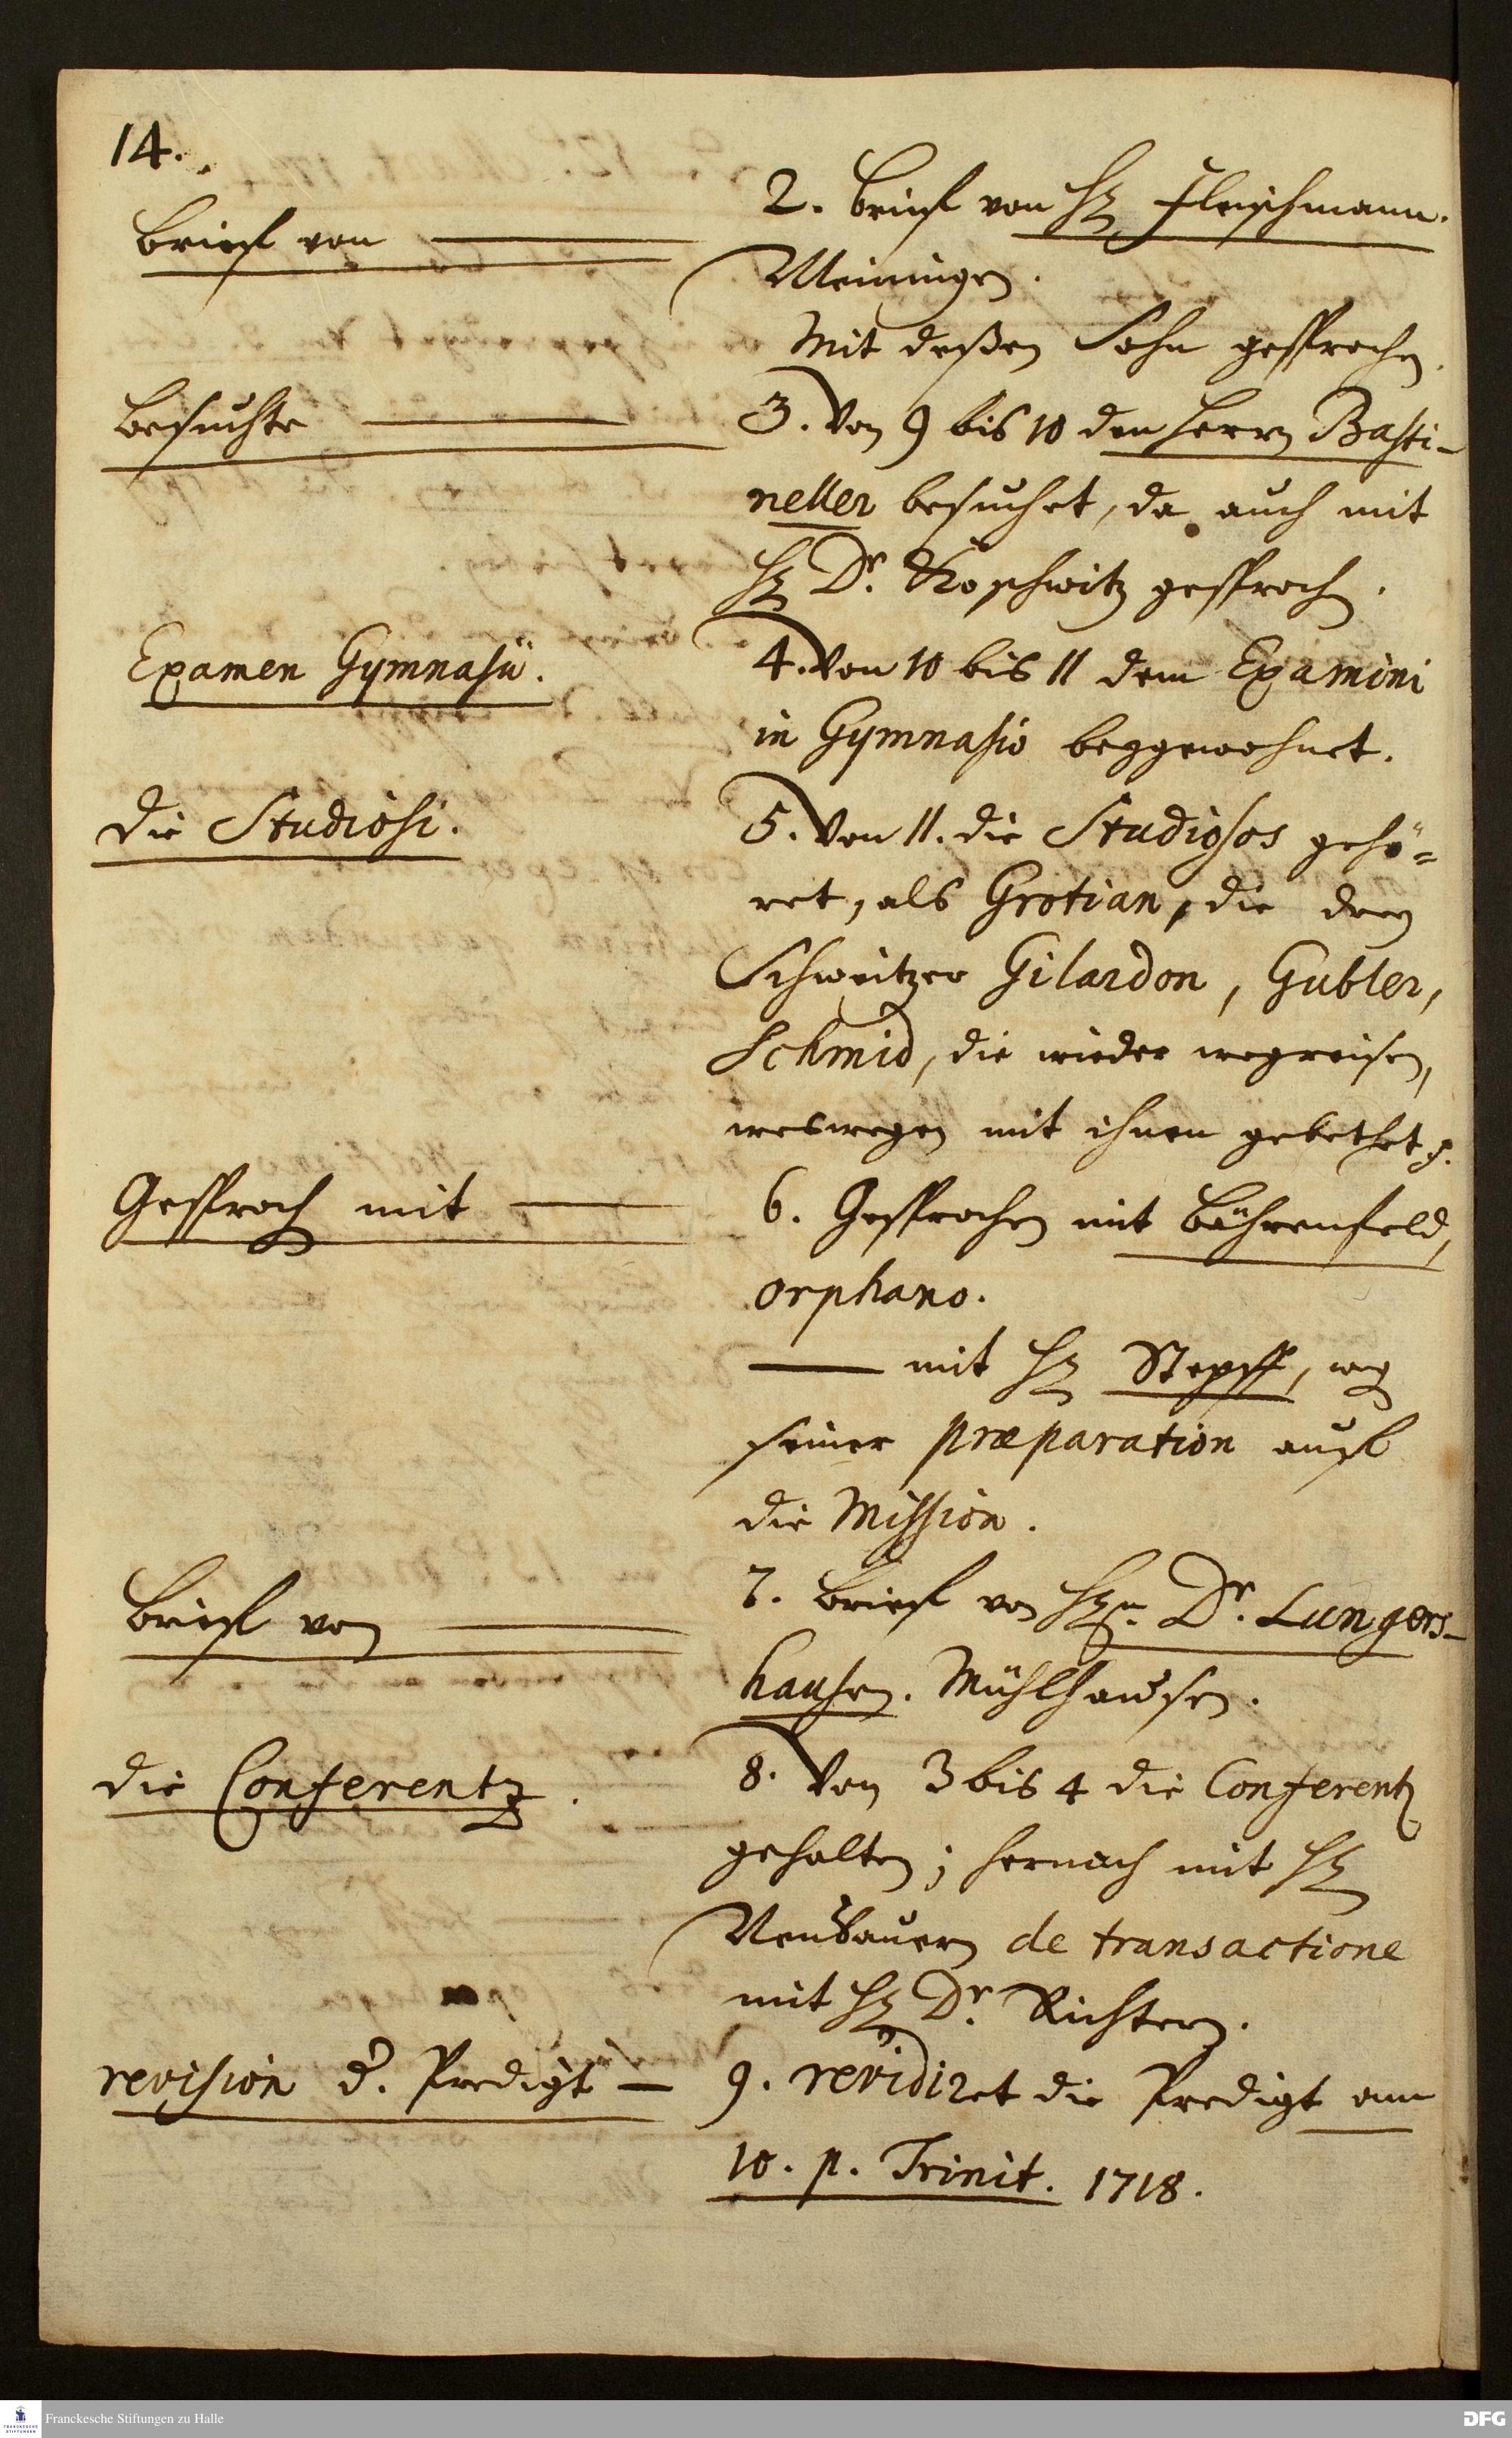 14.
Brieff von ———
2. Brieff von H. Fleischmann.
Meiningen.
Mit deßen Sohn gesprochen.
Besuchte ———
3. Von 9 bis 10 den Herrn Basti-
neller besuchet, da auch mit
H. Dr. Koschwitz gesproch.
Examen Gymnasii.
4. Von 10 bis 11 dem Examini
in Gymnasio beygewohnet.
die Studiosi.
5. Von 11. die Studiosos gehö-
ret, als Grotian, die drey
Schweitzer Gilardon, Gubler,
Schmid, die wieder wegreisen,
weswegen mit ihnen gebethet p.
Gesproch mit ———
6. Gesprochen mit Bährenfeld,
orphano.
——— mit H. Stepff, weg
seiner præparation auff
die Mission.
Brieff von ———
7. Brieff von Hrn. Dr. Lungers-
hausen. Mühlhausen.
die Conferentz.
8. Von 3 bis 4 die Conferentz
gehalten; hernach mit H.
Neubauern de transactione
mit H. Dr. Richtern.
revision d. Predigt —
9. revidiret die Predigt am
10. p. Trinit. 1718.
FRANCKESCHE STIFTUNGEN
Franckesche Stiftungen zu Halle
DFG